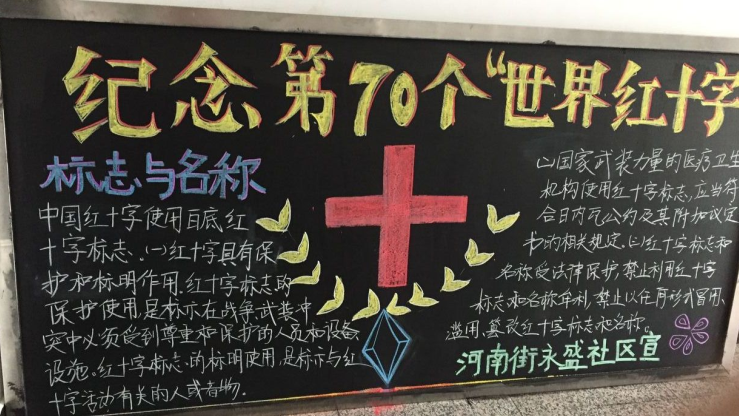 纪念第70个“世界红十字
标志与名称
中国红十字使用白底红
十字标志。(一)红十字具有保
护和标明作用。红十字标志的
保护使用,是标示在战争武装冲
突中必须受到尊重和保护的人员和设备
设施。红十字标志的标明使用,是标示与红
十字活动有关的人或者物。
国家武装力量的医疗卫生
机构使用红十字标志,应当符
合日内瓦公约及其附加议定
书的相关规定。(二)红十字标志和
名称受法律保护,禁止利用红十字
标志和名称牟利,禁止以任何形式冒用、
滥用、篡改红十字标志和名称。
河南街永盛社区宣